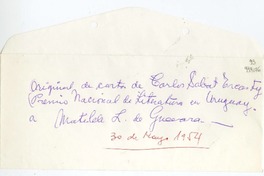 Original de carta de Carlos Sabat Ercasty
(Premio Nacional de Literatura en Uruguay.
a Matilde L. de Guevara.—
30 de Mayo 1954